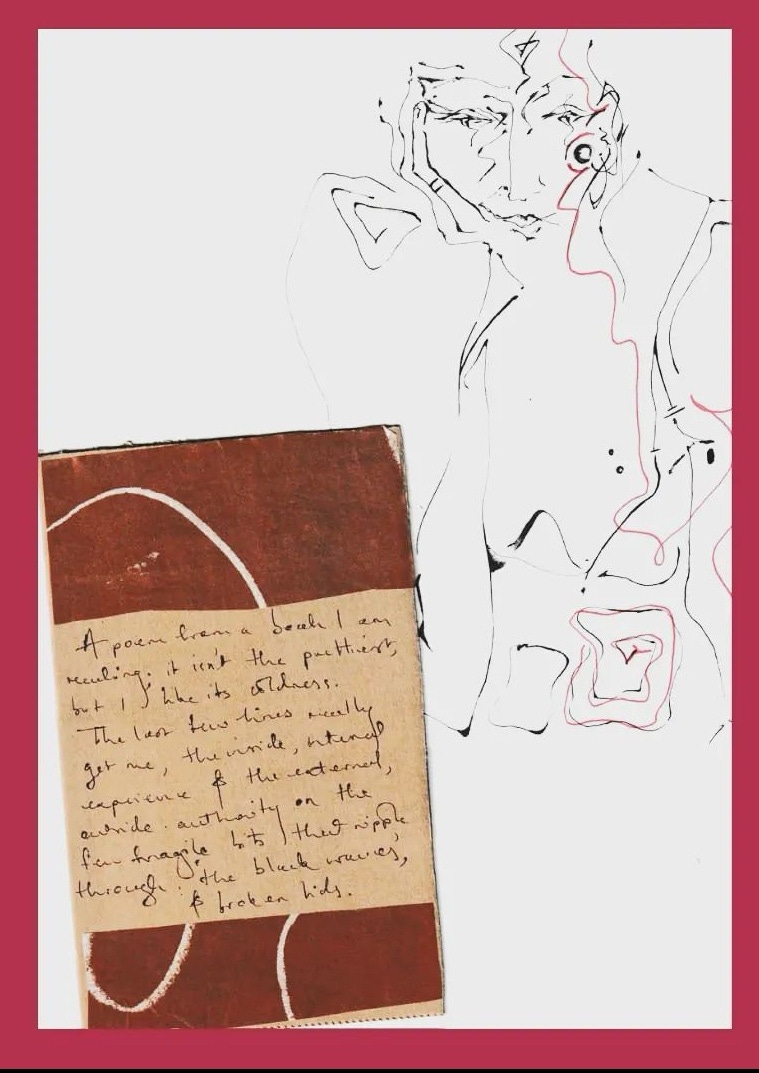 A poem from a book I am
reading; it isn't the prettiest,
but I like its oldness.
The last few lines really
get me, the inside, internal
experience & the external,
outside. authority on the
few fragile bits that ripple
through: the black waves,
& broken lids.